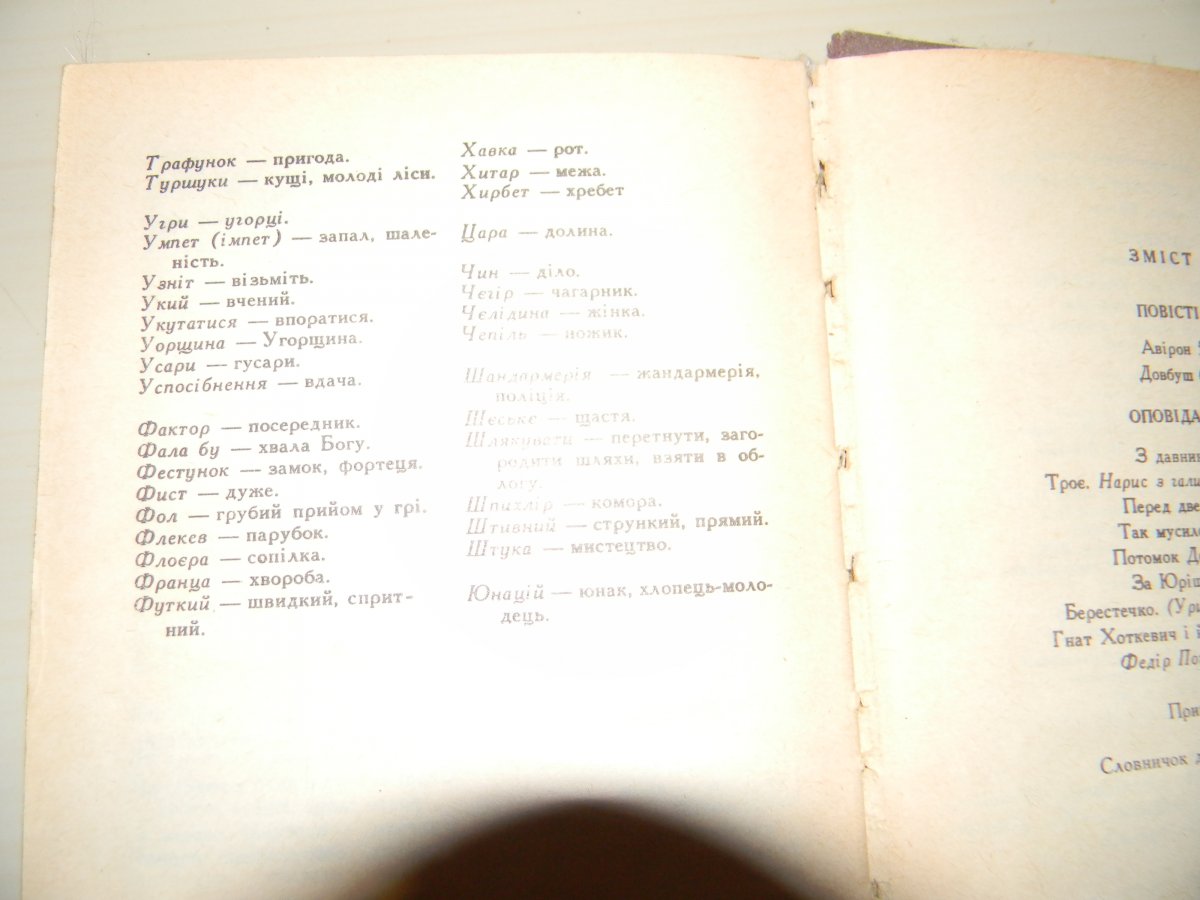 Трафунок — пригода.
Туршуки — кущі, молоді ліси.
Угри — угорці.
Умпет (імпет) — запал, шале-
ність.
Узніт — візьміть.
Укий — вчений.
Укутатися — впоратися.
Уорщина — Угорщина.
Усари — гусари.
Успосібнення — вдача.
Фактор — посередник.
Фала бу — хвала Богу.
Фестунок — замок, фортеця.
Фист — дуже.
Фол — грубий прийом у грі.
Флекев — парубок.
Флоєра — сопілка.
Франца — хвороба.
Футкий — швидкий, сприт-
ний.
Хавка — рот.
Хитар — межа.
Хирбет — хребет
Цара — долина.
Чин — діло.
Чегір — чагарник.
Челідина — жінка.
Чепіль — ножик.
Шандармерія — жандармерія,
поліція.
Шеське — щастя.
Шлякувати — перетнути, заго-
родити шляхи, взяти в об-
логу.
Шпихлір — комора.
Штивний — стрункий, прямий.
Штука — мистецтво.
Юнацій — юнак, хлопець-моло-
дець.
ЗМІСТ
ПОВІСТІ
Авірон
Довбуш
ОПОВІДА
З давнин
Троє. Нарис з гали
Перед две
Так мусил
Потомок Д
За Юріш
Берестечко. (Ури
Гнат Хоткевич і
Федір По
При
Словничок